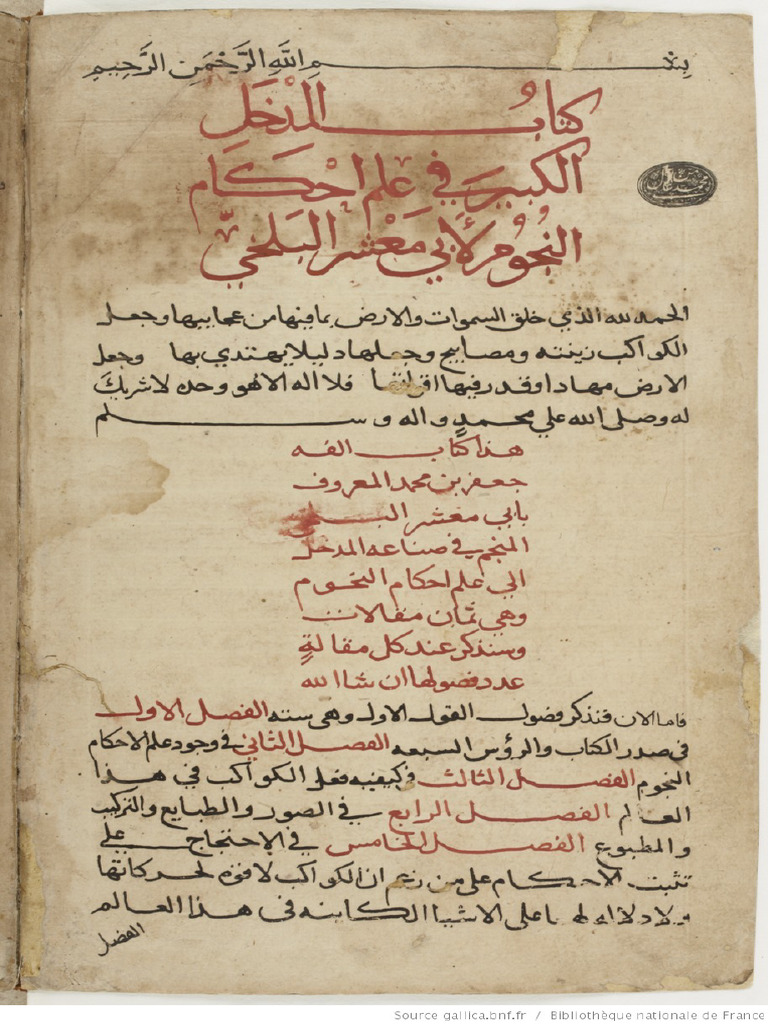 بسم الله الرحمن الرحيم
كتاب المدخل
الكبير في علم احكام
النجوم لأبي معشر البلخي
الحمد لله الذي خلق السموات والارض بما فيها من عجايبها وجعل
الكواكب زينته ومصابيح وجعلها دليلا يهتدي بها وجعل
الارض مهادا وقدر فيها اقواتها فلا اله الا هو وحده لا شريك
له وصلى الله علي محمد واله وسلم
هذا كتاب الفه
جعفر بن محمد المعروف
بابي معشر البلخي
المنجم في صناعه المدخل
الي علم احكام النجوم
وهي ثمان مقالات
وسنذكر عند كل مقالة
عدد فصولها ان شا الله
فاما الان فنذكر فصول القول الاول وهي سته الفصل الاول
في صدر الكتاب والرؤس السبعه الفصل الثاني في وجود علم الاحكام
النجوم الفصل الثالث في كيفيه فعل الكواكب في هذا
العالم الفصل الرابع في الصور والطبايع والتركيب
والمطبوع الفصل الخامس في الاحتجاج علي
تثبت الاحكام على من زعم ان الكواكب لا قوة لحركاتها
ولا دلالة لها على الاشيا الكاينه في هذا العالم
الفصل
Source gallica.bnf.fr / Bibliothèque nationale de France